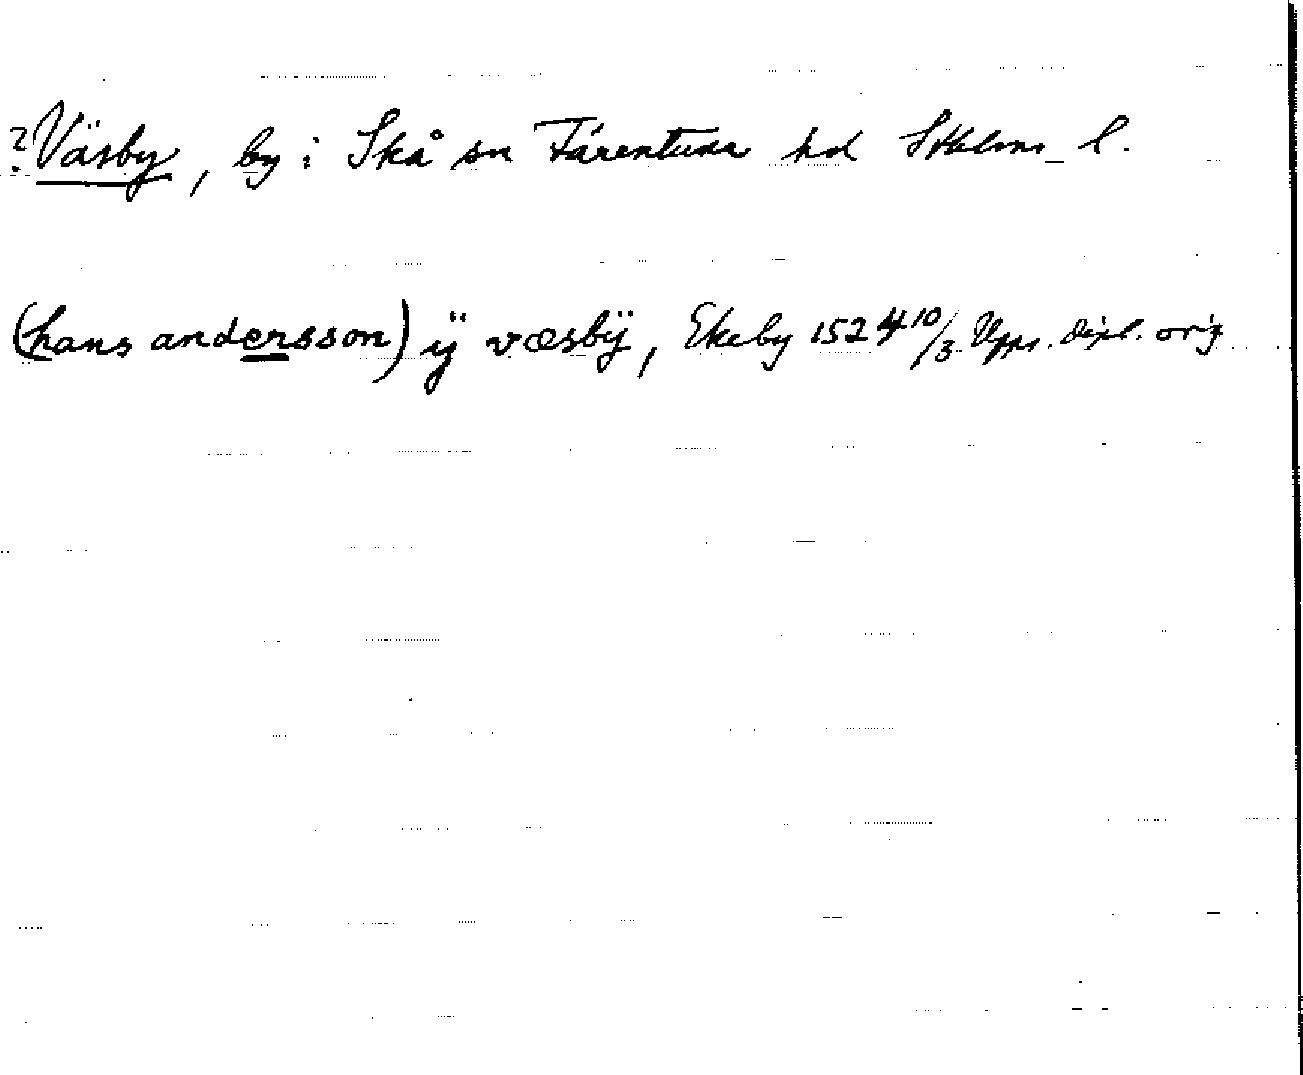 ?Väsby, by i Skå sn Färentuna hd Sthlms l.
(hans andersson) ÿ væsbÿ, Ekeby 1524 10/3 Upps. dipl. orig